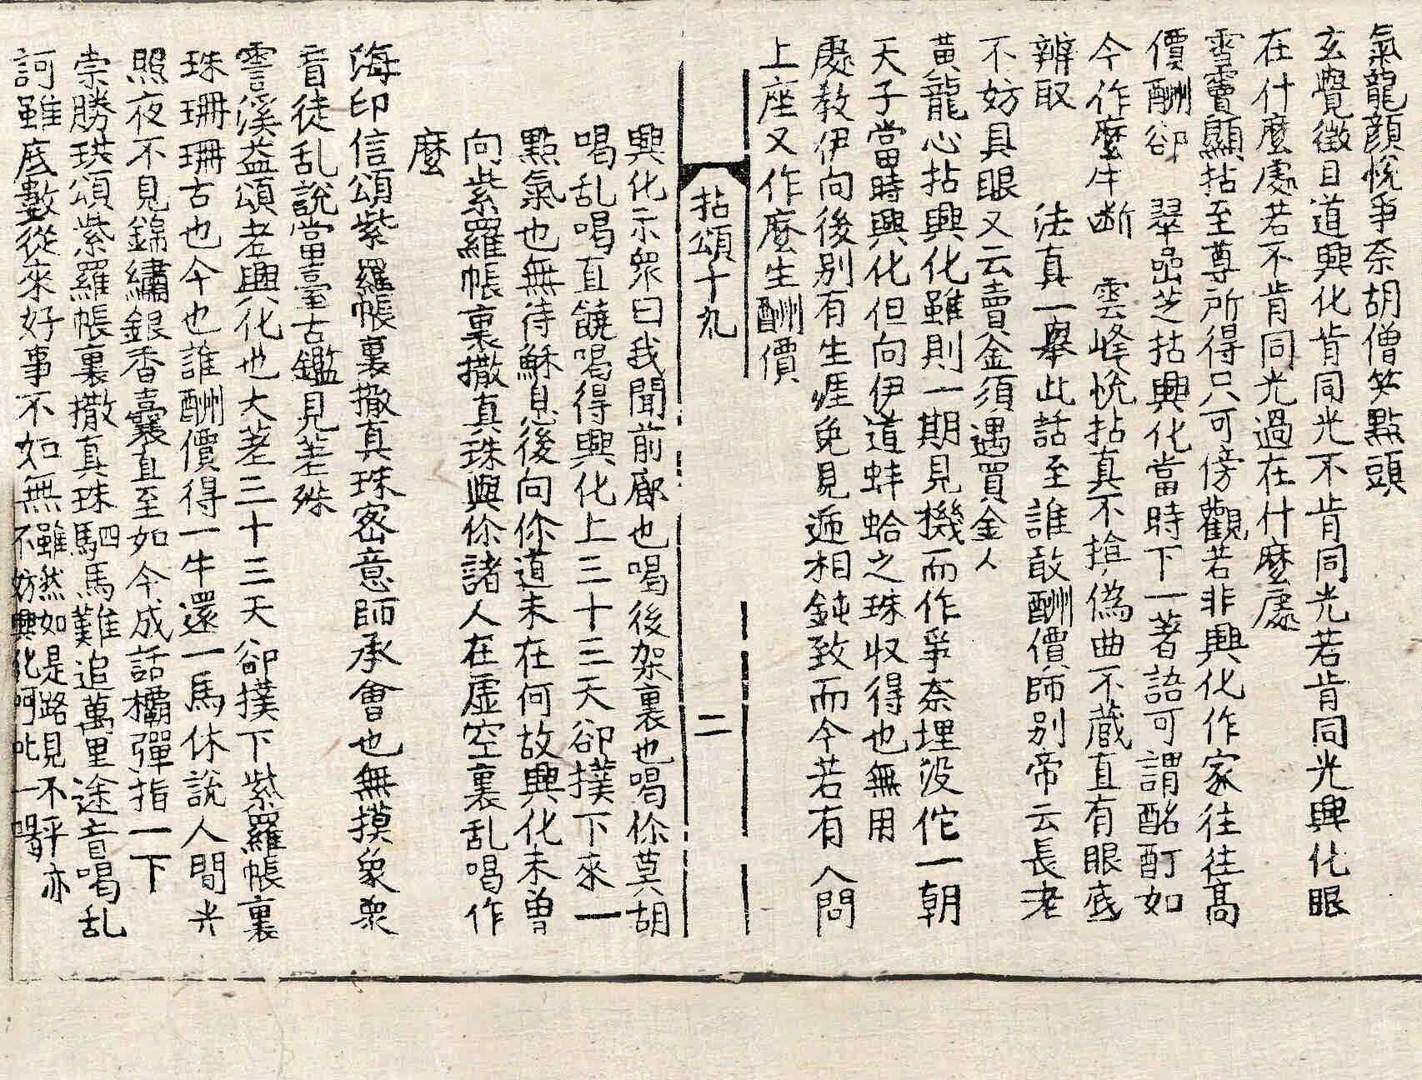 氣龍顏悅爭奈胡僧笑點頭
玄覺徵曰道興化肯同光不肯同光若肯同光興化眼
在什麼處若不肯同光過在什麼處
雪竇顯拈至尊所得只可傍觀若非興化作家往往高
價酬卻　翠嵓芝拈興化當時下一著語可謂酩酊如
今作麼生断　雲峰悅拈真不揜偽曲不藏直有眼底
辨取　法真一舉此話至誰敢酬價師別帝云長老
不妨具眼又云賣金須遇買金人
黃龍心拈興化雖則一期見機而作爭奈埋沒佗一朝
天子當時興化但向伊道蚌蛤之珠收得也無用
處教伊向後別有生涯免見遞相鈍致而今若有人問
上座又作麼生酬價
拈頌十九　二
興化示衆曰我聞前廊也喝後架裏也喝你莫胡
喝乱喝直饒喝得興化上三十三天卻撲下來一
點氣也無待穌息後向你道未在何故興化未曾
向紫羅帳裏撒真珠與你諸人在虛空裏乱喝作
麼
海印信頌紫羅帳裏撒真珠密意師承會也無摸象衆
盲徒乱說當臺古鑑見差殊
雲溪益頌老興化也大差三十三天卻撲下紫羅帳裏
珠珊珊古也今也誰酬價得一牛還一馬休說人間光
照夜不見錦繡銀香囊直至如今成話欛彈指一下
崇勝珙頌紫羅帳裏撒真珠駟馬難追萬里途盲喝乱
訶雖底數從來好事不如無雖然如是路見不平亦
不妨興化呵叱一喝